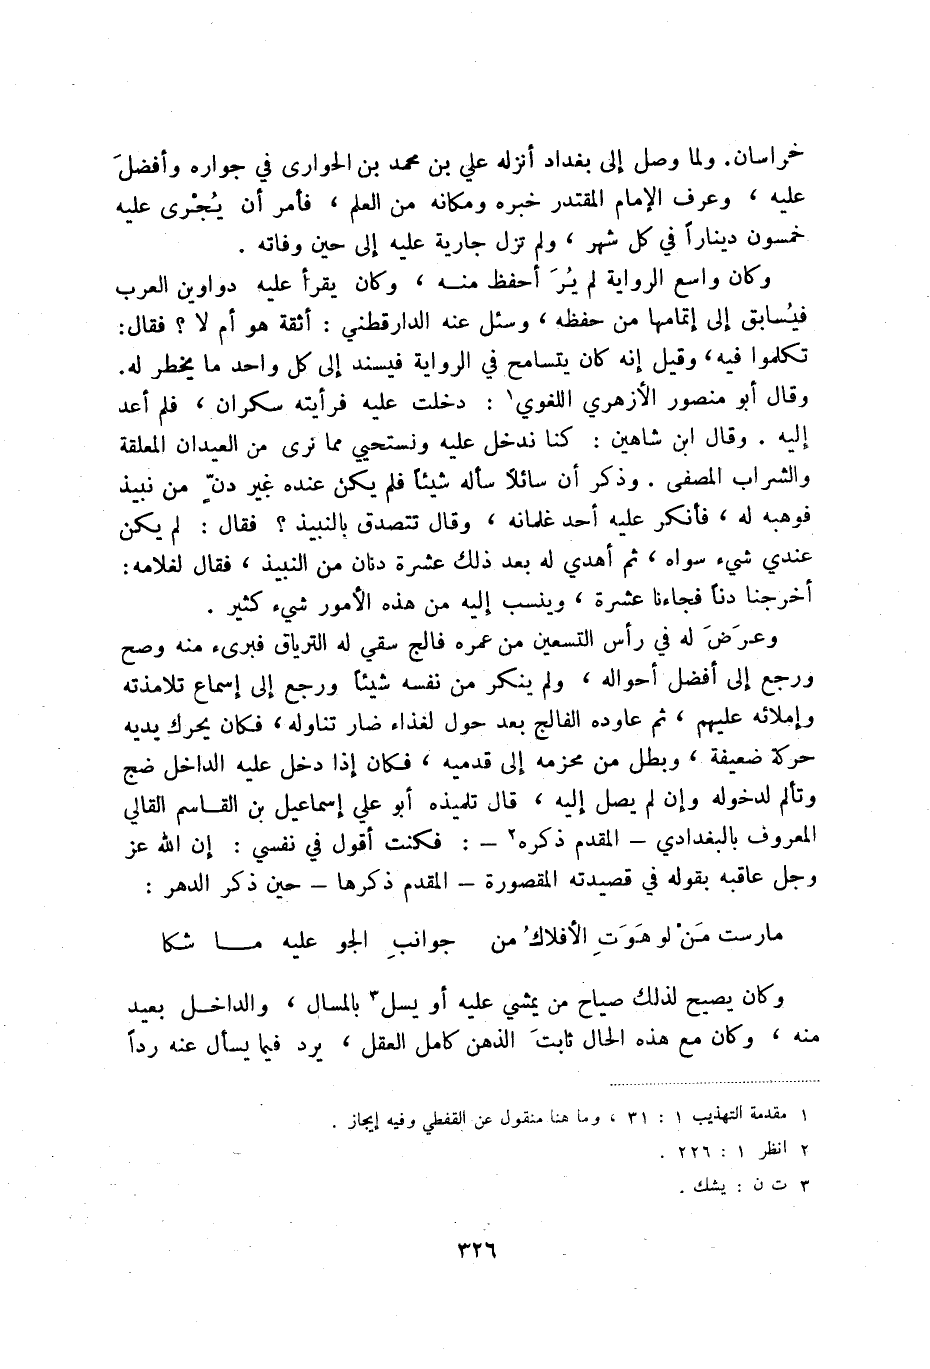 خراسان. ولما وصل إلى بغداد أنزله علي بن محمد بن الحوارى في جواره وأفضلَ
عليه ، وعرف الإمام المقتدر خبره ومكانه من العلم ، فأمر أن يُجْرى عليه
خمسون ديناراً في كل شهر ، ولم تزل جارية عليه إلى حين وفاته .
وكان واسع الرواية لم يُرَ أحفظ منه ، وكان يقرأ عليه دواوين العرب
فيُسابق إلى إتمامها من حفظه ، وسئل عنه الدارقطني : أثقة هو أم لا ؟ فقال:
تكلموا فيه، وقيل إنه كان يتسامح في الرواية فيسند إلى كل واحد ما يخطر له.
وقال أبو منصور الأزهري اللغوي١ : دخلت عليه فرأيته سكران ، فلم أعد
إليه . وقال ابن شاهين : كنا ندخل عليه ونستحيي مما نرى من العيدان المعلقة
والشراب المصفى . وذكر أن سائلاً سأله شيئاً فلم يكن عنده غير دنٍّ من نبيذ
فوهبه له ، فأنكر عليه أحد غلمانه ، وقال تتصدق بالنبيذ ؟ فقال : لم يكن
عندي شيء سواه ، ثم أهدي له بعد ذلك عشرة دنان من النبيذ ، فقال لغلامه:
أخرجنا دناً فجاءنا عشرة ، وينسب إليه من هذه الأمور شيء كثير .
وعرَضَ له في رأس التسعين من عمره فالج سقي له الترياق فبرىء منه وصح
ورجع إلى أفضل أحواله ، ولم ينكر من نفسه شيئاً ورجع إلى إسماع تلامذته
وإملائه عليهم ، ثم عاوده الفالج بعد حول لغذاء ضار تناوله ، فكان يحرك يديه
حركة ضعيفة ، وبطل من محزمه إلى قدميه ، فكان إذا دخل عليه الداخل ضج
وتألم لدخوله وإن لم يصل إليه ، قال تلميذه أبو علي إسماعيل بن القاسم القالي
المعروف بالبغدادي – المقدم ذكره٢ – : فكنت أقول في نفسي : إن الله عز
وجل عاقبه بقوله في قصيدته المقصورة – المقدم ذكرها – حين ذكر الدهر :
مارست مَنْ لو هَوَتِ الأفلاكُ من جوانبِ الجو عليه ما شكا
وكان يصيح لذلك صياح من يمشي عليه أو يسل٣ بالمسال ، والداخل بعيد
منه ، وكان مع هذه الحال ثابتَ الذهن كامل العقل ، يرد فيما يسأل عنه رداً
١ مقدمة التهذيب ١ : ٣١ ، وما هنا منقول عن القفطي وفيه إيجاز .
٢ انظر ١ : ٢٢٦ .
٣ ت ن : يشك .
٣٢٦